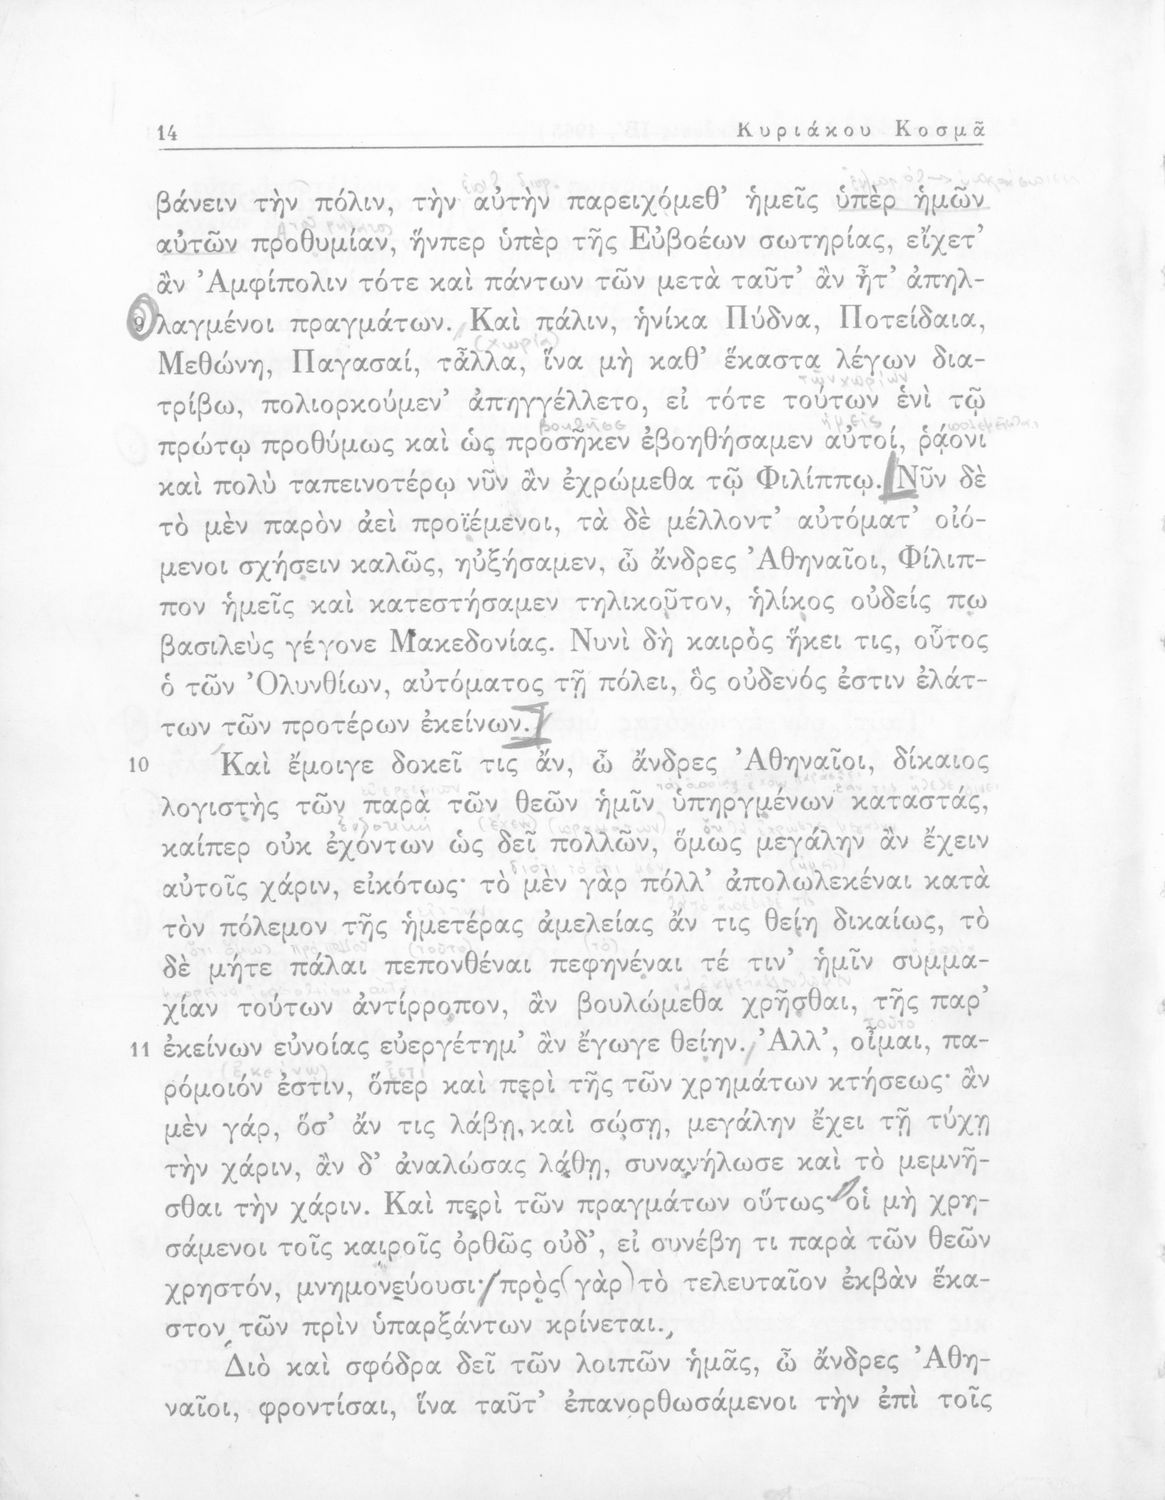 14 Κυριάκου Κοσμᾶ
βάνειν τὴν πόλιν, τὴν αὐτὴν παρειχόμεθ’ ἡμεῖς ὑπὲρ ἡμῶν
αὐτῶν προθυμίαν, ἥνπερ ὑπὲρ τῆς Εὐβοέων σωτηρίας, εἴχετ’
ἂν Ἀμφίπολιν τότε καὶ πάντων τῶν μετὰ ταῦτ’ ἂν ἦτ’ ἀπηλ-
9 λαγμένοι πραγμάτων. Καὶ πάλιν, ἡνίκα Πύδνα, Ποτείδαια,
(χωρία)
Μεθώνη, Παγασαί, τἆλλα, ἵνα μὴ καθ’ ἕκαστα λέγων δια-
τῶν χωρίων
τρίβω, πολιορκούμεν’ ἀπηγγέλλετο, εἰ τότε τούτων ἑνὶ τῷ
ἡμεῖς
πρώτῳ προθύμως καὶ ὡς προσῆκεν ἐβοηθήσαμεν αὐτοί, ῥᾴονι
καὶ πολὺ ταπεινοτέρῳ νῦν ἂν ἐχρώμεθα τῷ Φιλίππῳ. Νῦν δὲ
τὸ μὲν παρὸν ἀεὶ προϊέμενοι, τὰ δὲ μέλλοντ’ αὐτόματ’ οἰό-
μενοι σχήσειν καλῶς, ηὐξήσαμεν, ὦ ἄνδρες Ἀθηναῖοι, Φίλιπ-
πον ἡμεῖς καὶ κατεστήσαμεν τηλικοῦτον, ἡλίκος οὐδείς πω
βασιλεὺς γέγονε Μακεδονίας. Νυνὶ δὴ καιρὸς ἥκει τις, οὗτος
ὁ τῶν Ὀλυνθίων, αὐτόματος τῇ πόλει, ὃς οὐδενός ἐστιν ἐλάτ-
των τῶν προτέρων ἐκείνων.
10 Καὶ ἔμοιγε δοκεῖ τις ἄν, ὦ ἄνδρες Ἀθηναῖοι, δίκαιος
λογιστὴς τῶν παρὰ τῶν θεῶν ἡμῖν ὑπηργμένων καταστάς,
καίπερ οὐκ ἐχόντων ὡς δεῖ πολλῶν, ὅμως μεγάλην ἂν ἔχειν
αὐτοῖς χάριν, εἰκότως· τὸ μὲν γὰρ πόλλ’ ἀπολωλεκέναι κατὰ
τὸν πόλεμον τῆς ἡμετέρας ἀμελείας ἄν τις θείη δικαίως, τὸ
(τοῦτο) (τὸ)
δὲ μήτε πάλαι πεπονθέναι πεφηνέναι τέ τιν’ ἡμῖν συμμα-
χίαν τούτων ἀντίρροπον, ἂν βουλώμεθα χρῆσθαι, τῆς παρ’
τοῦτο
11 ἐκείνων εὐνοίας εὐεργέτημ’ ἂν ἔγωγε θείην. Ἀλλ’, οἶμαι, πα-
(ἐκείνῳ) ἐστί
ρόμοιόν ἐστιν, ὅπερ καὶ περὶ τῆς τῶν χρημάτων κτήσεως· ἂν
μὲν γάρ, ὅσ’ ἄν τις λάβῃ, καὶ σώσῃ, μεγάλην ἔχει τῇ τύχῃ
τὴν χάριν, ἂν δ’ ἀναλώσας λάθῃ, συνανήλωσε καὶ τὸ μεμνῆ-
σθαι τὴν χάριν. Καὶ περὶ τῶν πραγμάτων οὕτως· οἱ μὴ χρη-
σάμενοι τοῖς καιροῖς ὀρθῶς οὐδ’, εἰ συνέβη τι παρὰ τῶν θεῶν
χρηστόν, μνημονεύουσι· πρὸς (γὰρ) τὸ τελευταῖον ἐκβὰν ἕκα-
στον τῶν πρὶν ὑπαρξάντων κρίνεται.
Διὸ καὶ σφόδρα δεῖ τῶν λοιπῶν ἡμᾶς, ὦ ἄνδρες Ἀθη-
ναῖοι, φροντίσαι, ἵνα ταῦτ’ ἐπανορθωσάμενοι τὴν ἐπὶ τοῖς